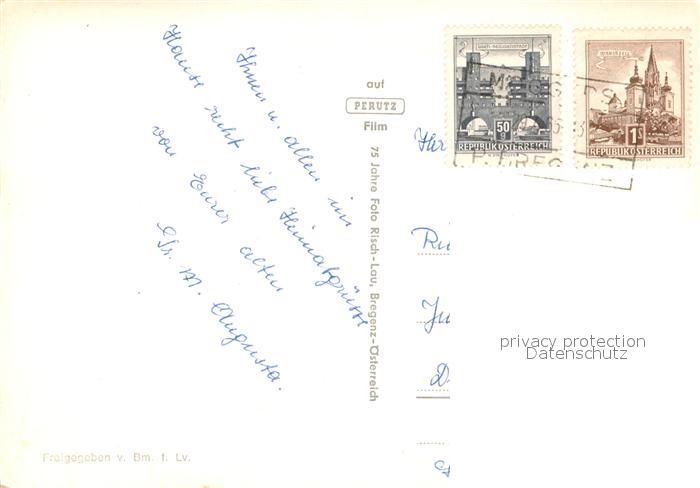 Ihnen u. allen im
Hause recht liebe Heimatgrüsse
von Eurer alten
Sr. M. Augusta.
Freigegeben v. Bm. f. Lv.
auf
PERUTZ
Film
75 Jahre Foto Risch-Lau, Bregenz-Österreich
WIEN-HEILIGENSTADT
50
g
REPUBLIK ÖSTERREICH
MARIAZELL
1S
REPUBLIK ÖSTERREICH
privacy protection
Datenschutz